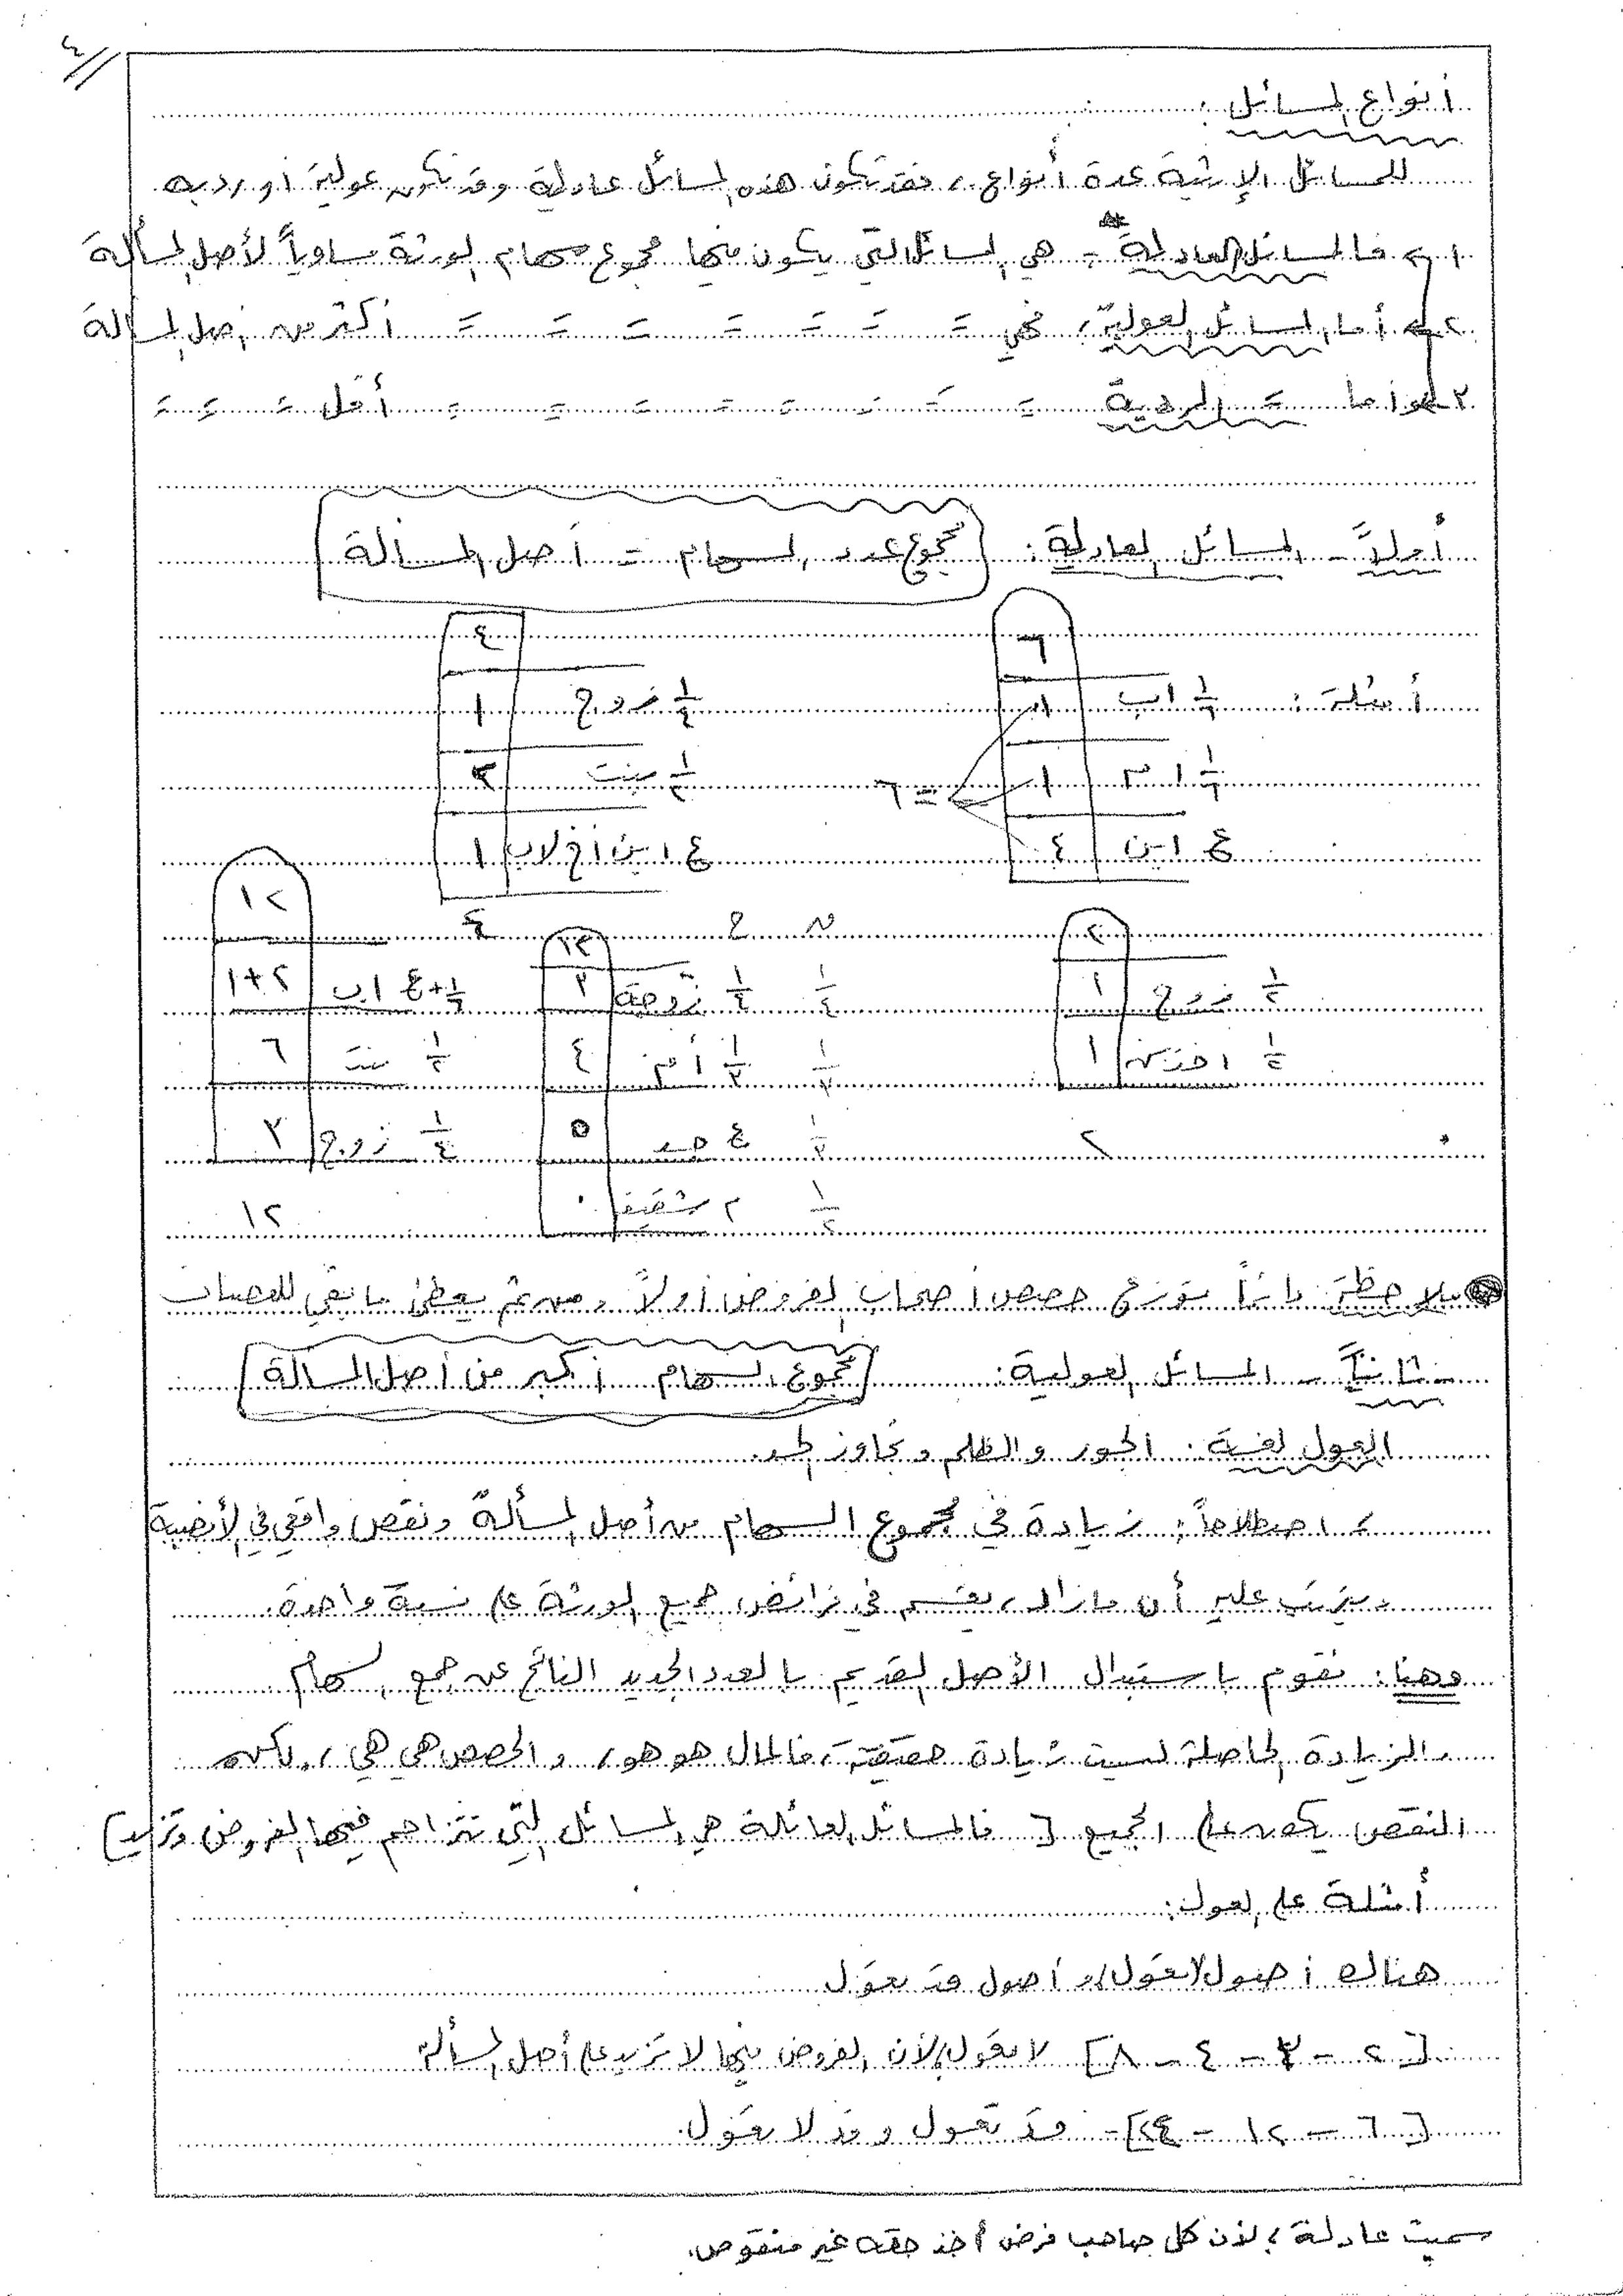 ٤
أنواع المسائل :
للمسائل الإرثية عدة أنواع، فقد تكون هذه المسائل عادلة وقد تكون عولية أو ردية
١- فالمسائل العادلة - هي المسائل التي يكون فيها مجموع سهام الورثة مساوياً لأصل المسألة
٢- أما المسائل العولية، فهي = = = = = = = أكثر من أصل المسألة
٣- وأما = الردية = = = = = = = = أقل = = =
أولاً - المسائل العادلة : (مجموع عدد السهام = أصل المسألة)
٦ ٤
أمثلة : ١/٦ اب ١ ١/٤ زوج ١
١/٦ ام ١ = ٦ ١/٢ بنت ٢
ع ابن ٤ ع ابن اخ لاب ١
٢ ١٢ ٤ ١٢
١/٢ زوج ١ ١/٤ ١/٤ زوجة ٣ ١/٦ + ع اب ٢+١
١/٢ اخت ١ ١/٣ ١/٣ أم ٤ ١/٢ بنت ٦
٢ ع جد ٥ ١/٤ زوج ٣
١/٢ م شقيقة ٠ ١٢
ملاحظة دائماً نوزع حصص أصحاب الفروض أولاً ومن ثم يعطى ما بقي للعصبات
ثانياً - المسائل العولية : (مجموع السهام أكبر من أصل المسالة)
العول لغة : الجور والظلم وتجاوز الحد.
اصطلاحاً : زيادة في مجموع السهام من أصل المسألة ونقص واقعي في الأنصبة
ويترتب عليه أن مازاد، يقسم في فرائض جميع الورثة على نسبة واحدة.
وهنا : نقوم باستبدال الأصل القديم بالعدد الجديد الناتج عن جمع السهام
والزيادة الحاصلة ليست زيادة حقيقية، فالمال هو هو، والحصص هي هي، ولكن
النقص يكون على الجميع [ فالمسائل العائلة هي المسائل التي تتزاحم فيها الفروض وتزيد]
أمثلة على العول :
هناك أصول لا تعول، وأصول قد تعول
[٢ - ٣ - ٤ - ٨] لا تعول لأن الفروض فيها لا تزيد على أصل المسألة
[٦ - ١٢ - ٢٤] - قد تعول وقد لا تعول.
سميت عادلة ؛ لأن كل صاحب فرض أخذ حقه غير منقوص.